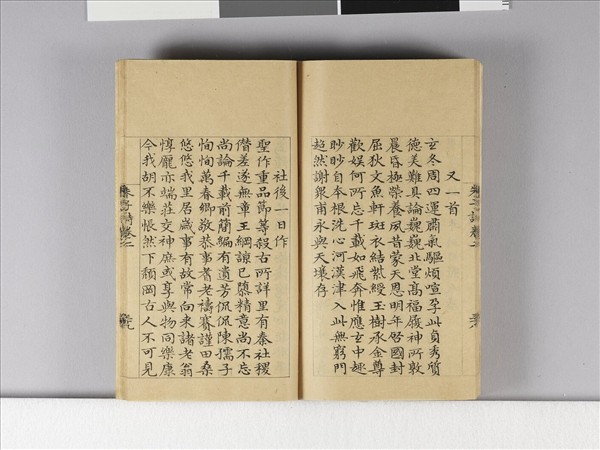 又一首
玄冬周四運肅氣驅煩喧孕此貞秀質
德美難具論巍巍北堂高福履神所敦
晨昏極榮養夙昔蒙天恩明年啓國封
屈狄文魚軒斑衣結紫綬玉樹承金尊
歡娛何所忘千載如飛奔惟應玄中趣
眇眇自本根洗心河漢津入此無窮門
超然謝衆甫永與天壤存
社後一日作
聖作重品節等殺古所詳里有泰社稷
僭差遂無章王綱諒已隳精意尚不忘
尚論千載前簡編有遺芳侃侃陳孺子
恂恂萬春卿敬恭事耆老禱賽謹田桑
悠悠我里居歲事有故常向來諸老翁
惇龐亦端莊交神庶或享與物同樂康
今我胡不樂悵然下頹岡古人不可見